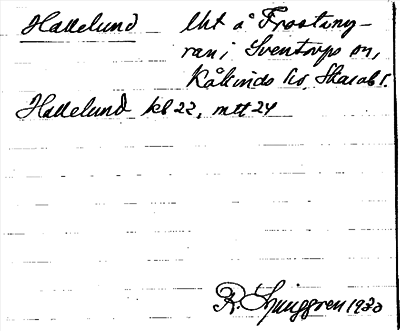 Hallelund Uht å Frostany-
ran i Sventorps sn,
Kåkinds hd, Skarab l.
Hallelund kl 22, mtt 24
R. Ljunggren 1930